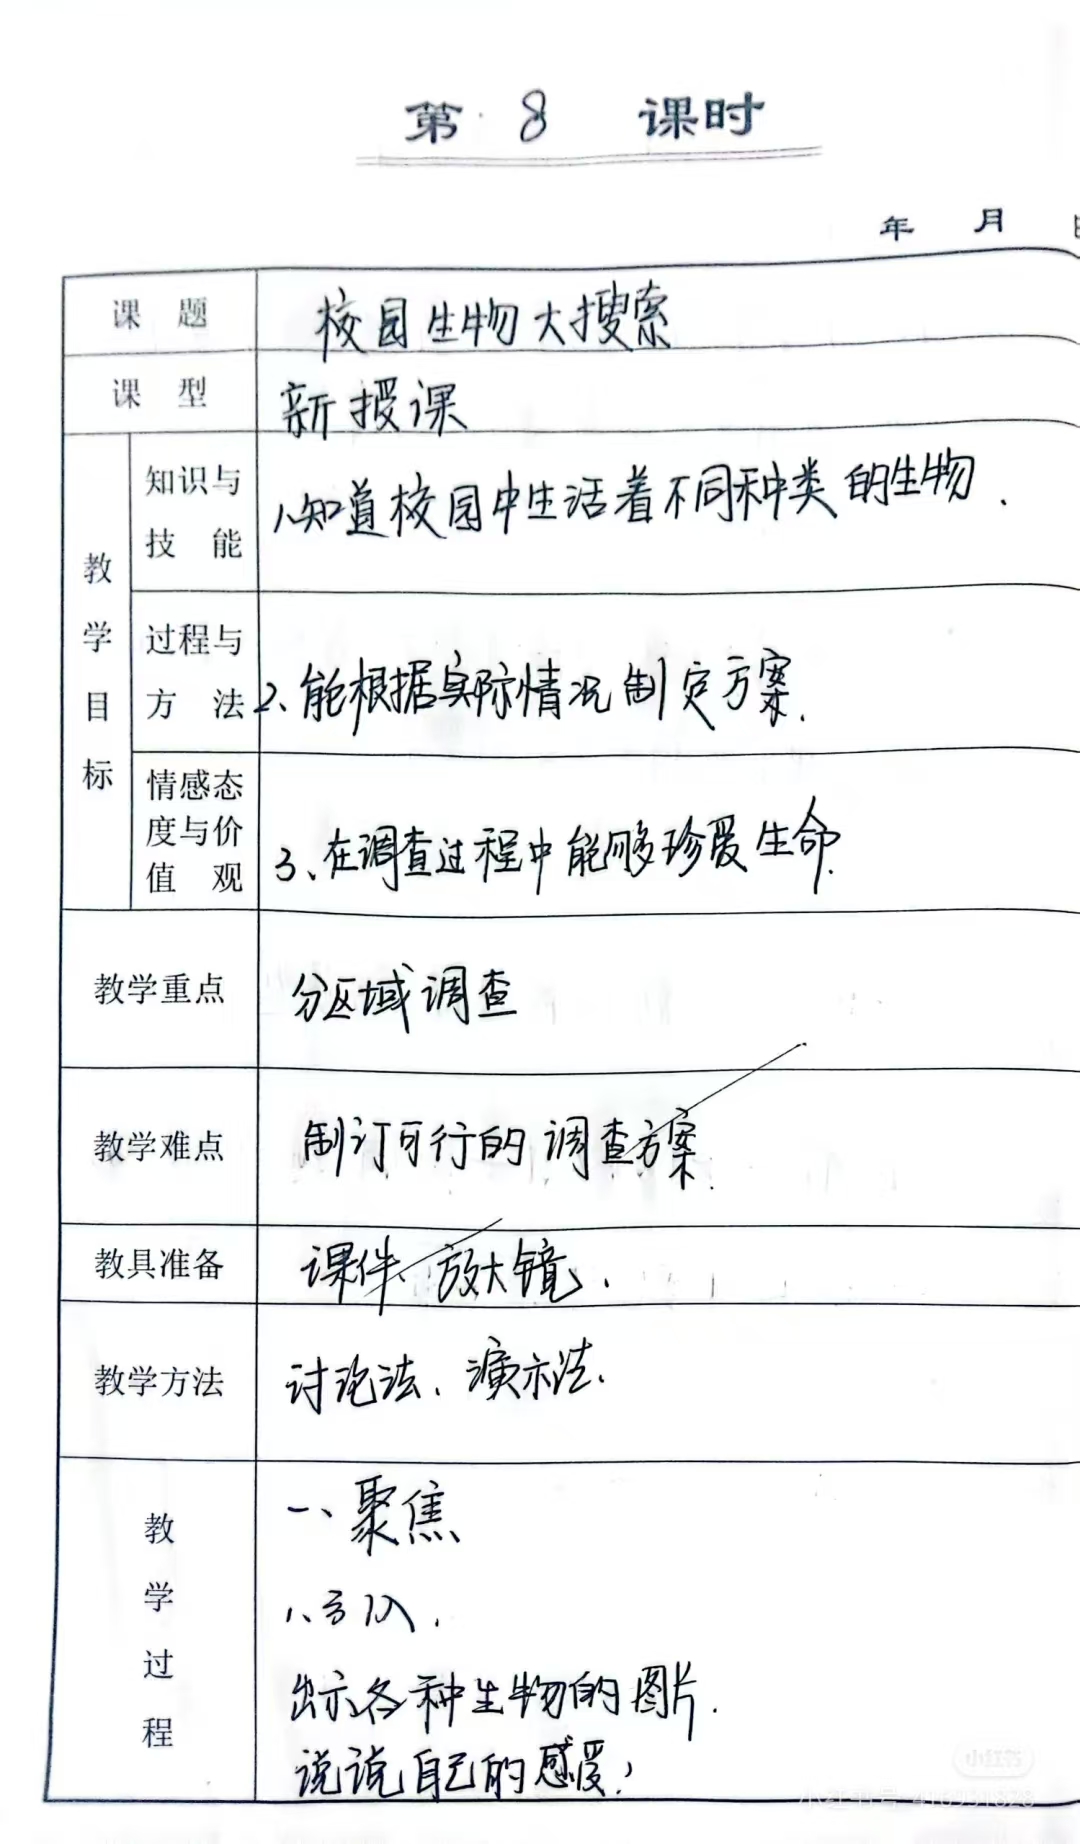 第 8 课时
年 月
课题 校园生物大搜索
课型 新授课
教学目标
知识与技能 1、知道校园中生活着不同种类的生物.
过程与方法 2、能根据实际情况制定方案.
情感态度与价值观 3、在调查过程中能够珍爱生命.
教学重点 分区域调查
教学难点 制订可行的调查方案.
教具准备 课件、放大镜.
教学方法 讨论法、演示法.
教学过程 一、聚焦
出示各种生物的图片.
说说自己的感受!
小红书